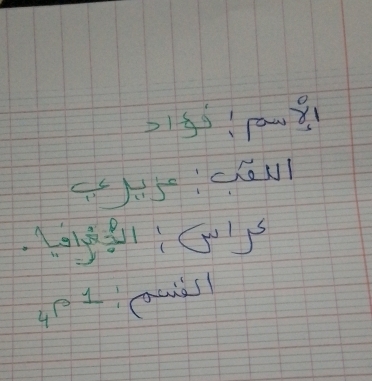 الإسم : فؤاد
اللقب : عزيزي
كراس : الجغرافيا .
القسم : 1 م 4